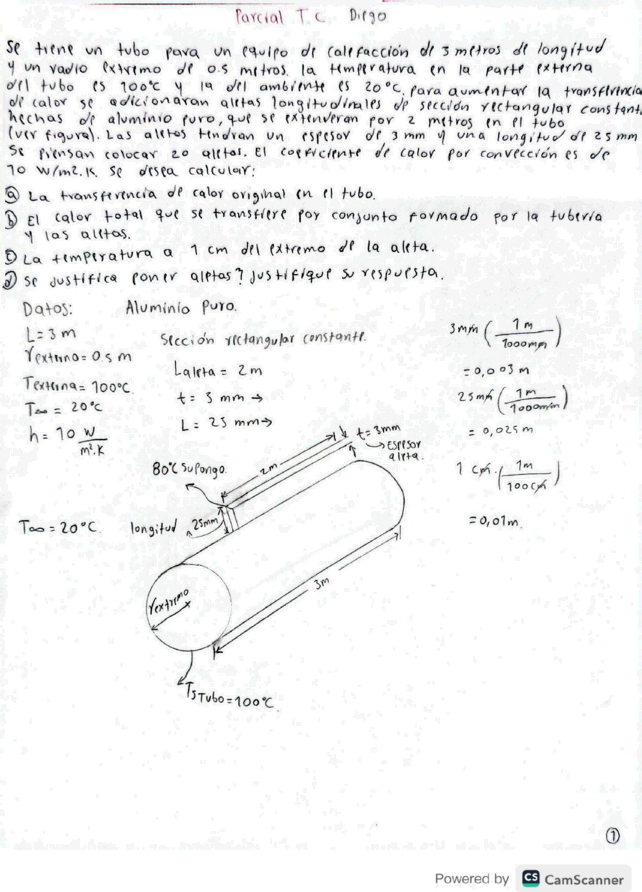 Parcial T.C. Diego
Se tiene un tubo para un equipo de calefacción de 3 metros de longitud
y un radio extremo de 0.5 metros. la temperatura en la parte externa
del tubo es 100°C y la del ambiente es 20°C. para aumentar la transferencia
de calor se adicionaran aletas longitudinales de sección rectangular constante,
hechas de aluminio puro, que se extenderan por 2 metros en el tubo
(ver figura). Las aletas tendran un espesor de 3 mm y una longitud de 25 mm
Se piensan colocar 20 aletas. El coeficiente de calor por convección es de
10 W/m2.K. Se desea calcular:
a) La transferencia de calor original en el tubo.
b) El calor total que se transfiere por conjunto formado por la tubería
y las aletas.
c) La temperatura a 1 cm del extremo de la aleta.
d) Se justifica poner aletas? Justifique su respuesta.
Datos: Aluminio Puro.
L = 3 m
rextremo = 0.5 m
Texterna = 100°C
T∞ = 20°C
h = 10 W/m².K
Sección rectangular constante.
Laleta = 2m
t = 3 mm →
L = 25 mm →
3mm (1m/1000mm)
= 0,003 m
25mm (1m/1000mm)
= 0,025 m
1 cm. (1m/100cm)
= 0,01m
t = 3mm
→ Espesor
aleta.
2m
80°C Supongo.
T∞ = 20°C longitud 25mm
rextremo
3m
Ts Tubo = 100°C
1
Powered by CS CamScanner